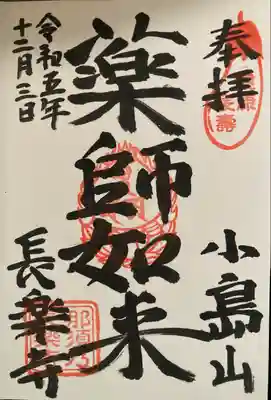 奉拝
小島山
薬師如来
長楽寺
令和五年
十二月三日